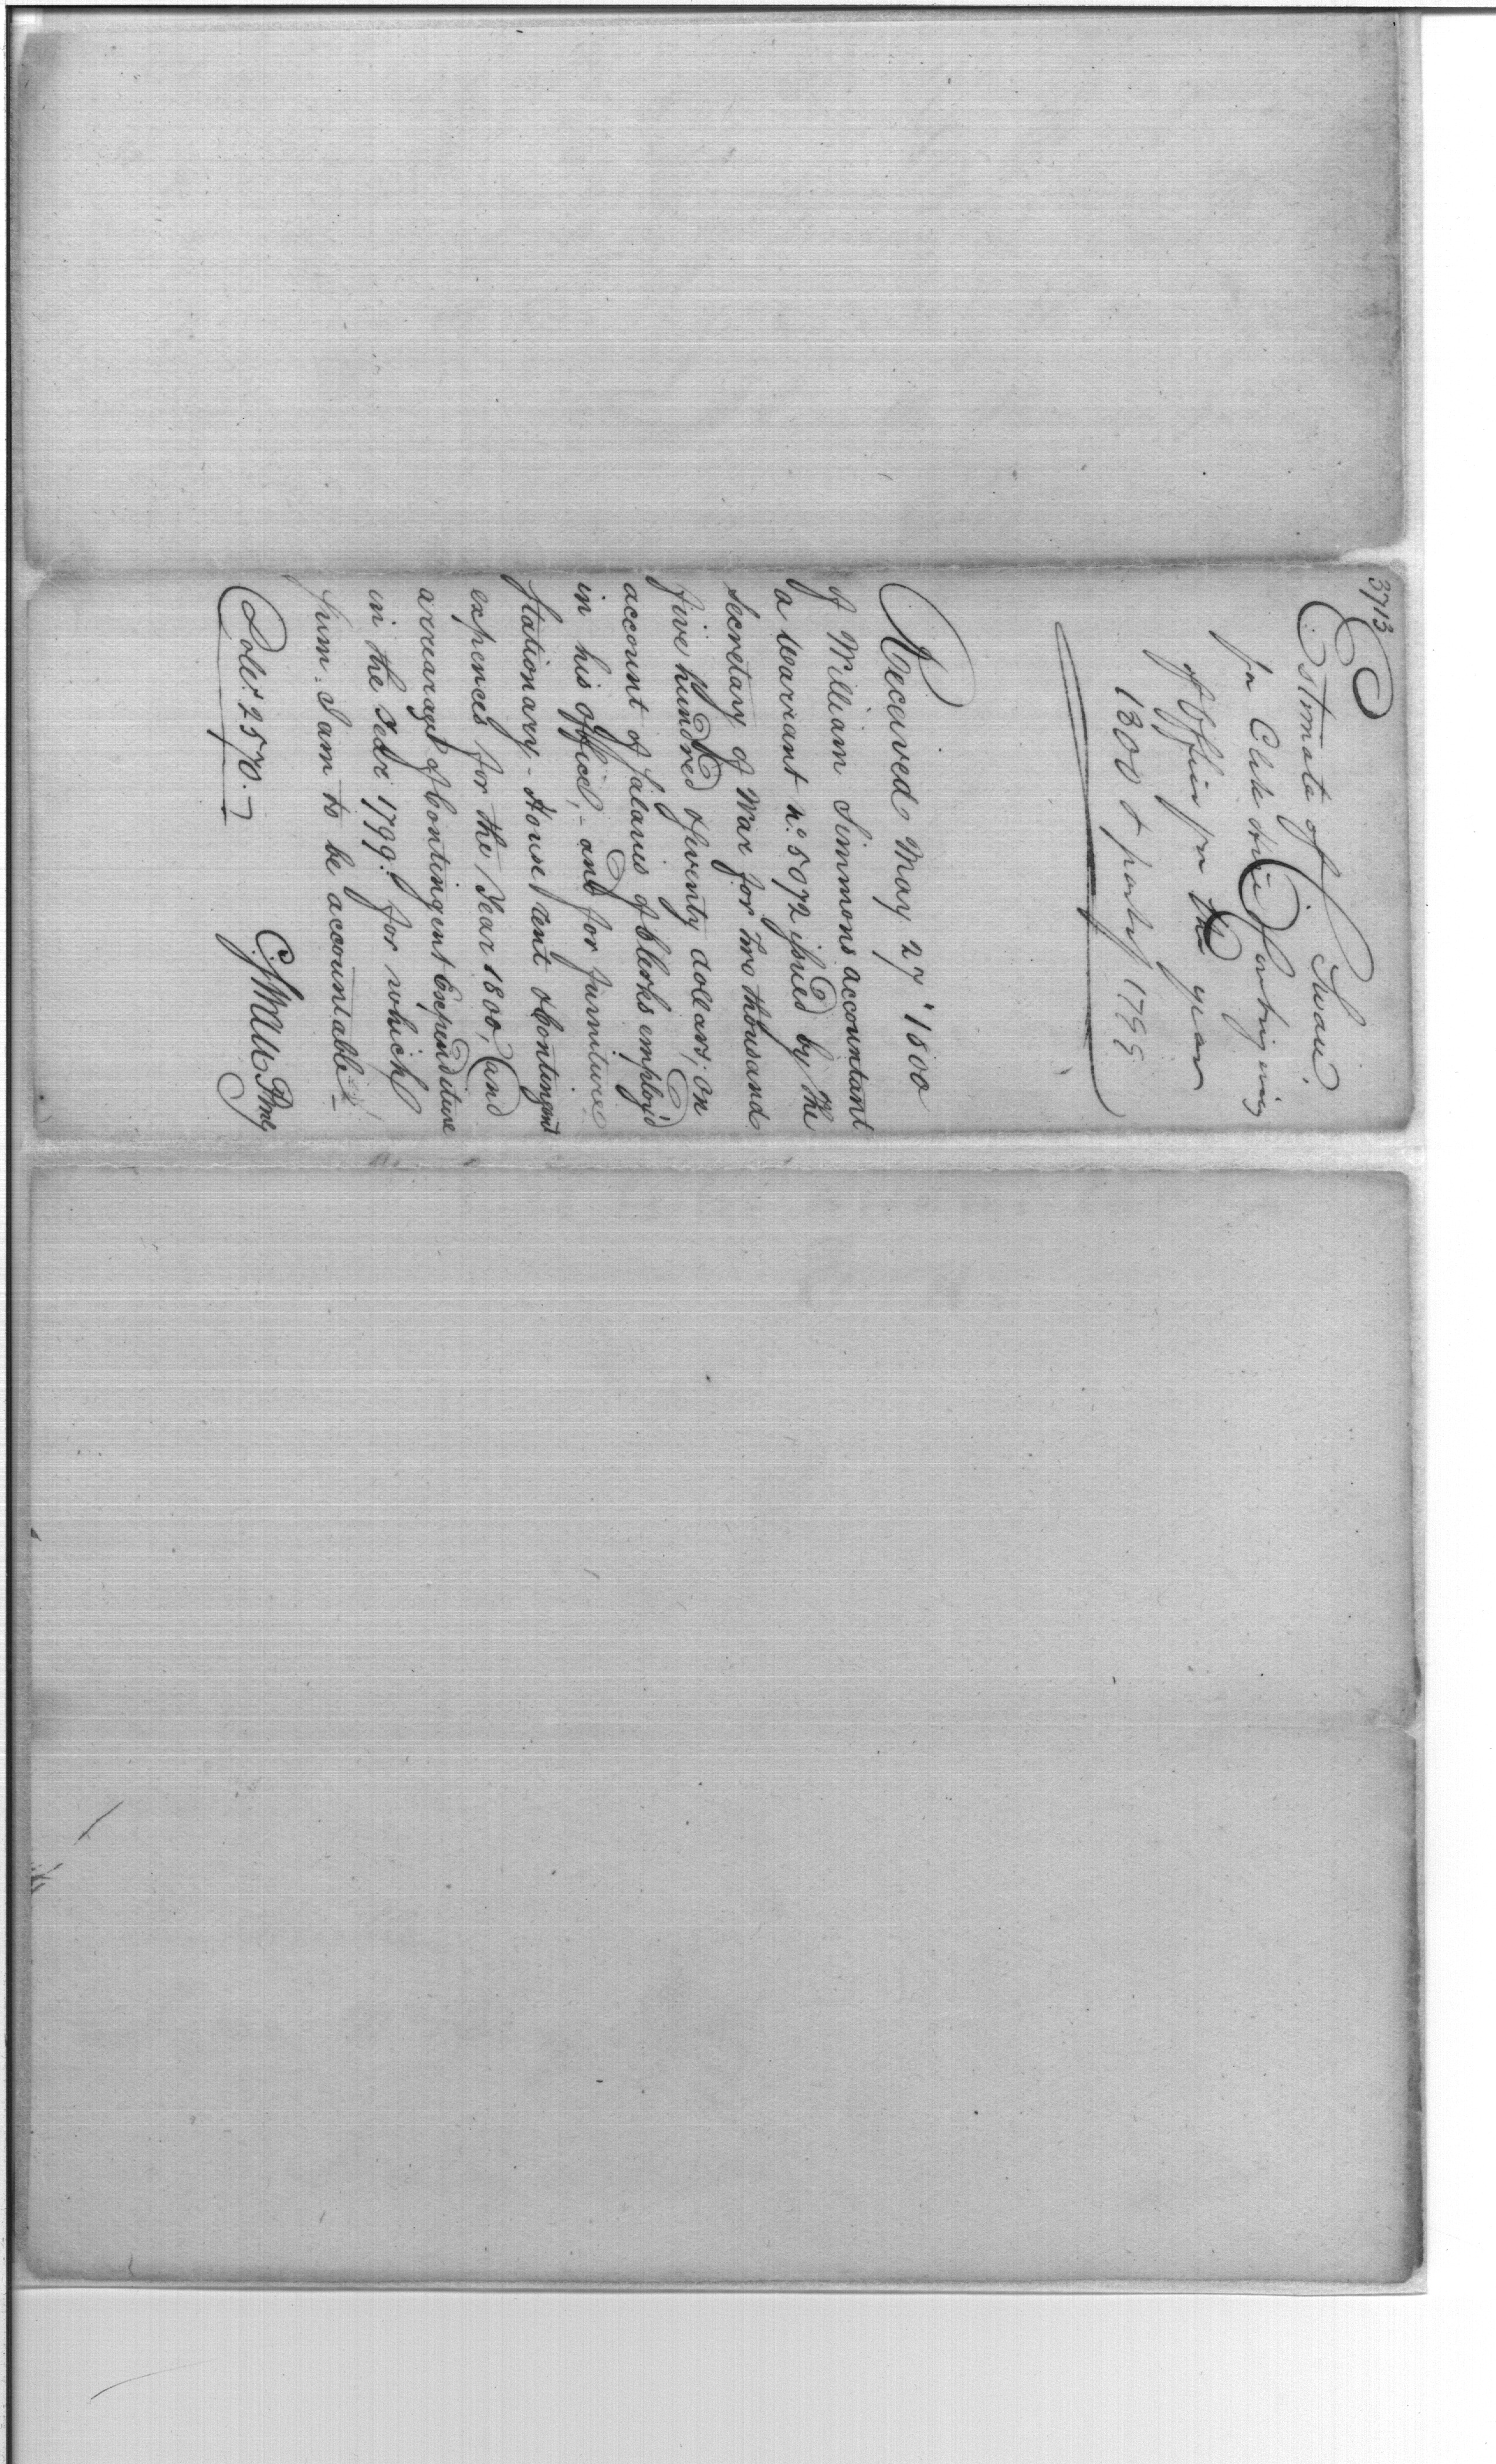 3713
Estimate of C Swan
for Clk hire Contingencies
of Office for the year
1800 & part of 1799
Received May 27 1800
of William Simmons accountant
a Warrant No. 5072 issued by the
Secretary of War for Two thousand
five hundred & seventy dollars; on
account of salaries of Clerks employ'd
in his office, - and for furniture
stationary - House rent & Contingent
expences for the Year 1800, and
arrearages of Contingent Expenditure
in the Year 1799. for which
sum. I am to be accountable -
Dolls. 2570.-
C. Swan PMG